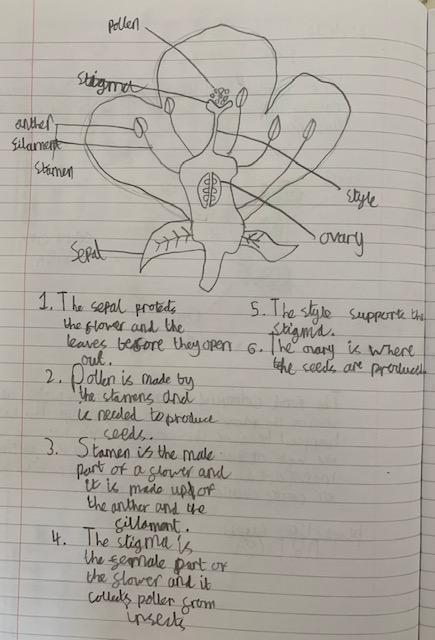 Pollen
Stigma
anther
filament
Stamen
Style
Ovary
Sepal
1. The sepal protects
the flower and the
leaves before they open
out.
2. Pollen is made by
the stamens and
is needed to produce
seeds.
3. Stamen is the male
part of a flower and
it is made up of
the anther and the
fillament.
4. The stigma is
the female part of
the flower and it
collects pollen from
insects
5. The style supports the
stigma.
6. The ovary is where
the seeds are produced